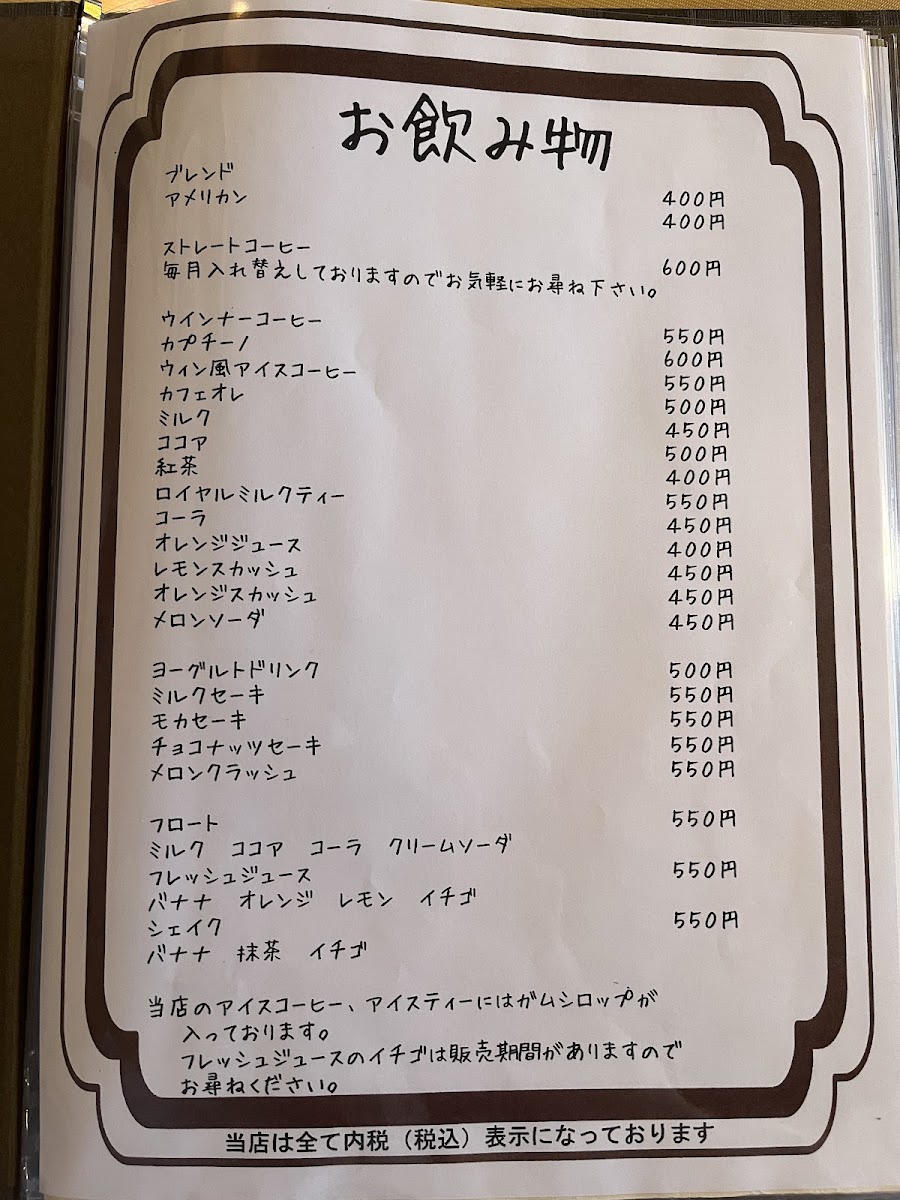 お飲み物
ブレンド 400円
アメリカン 400円
ストレートコーヒー 600円
毎月入れ替えしておりますのでお気軽にお尋ね下さい。
ウインナーコーヒー 550円
カプチーノ 600円
ウィン風アイスコーヒー 550円
カフェオレ 500円
ミルク 450円
ココア 500円
紅茶 400円
ロイヤルミルクティー 550円
コーラ 450円
オレンジジュース 400円
レモンスカッシュ 450円
オレンジスカッシュ 450円
メロンソーダ 450円
ヨーグルトドリンク 500円
ミルクセーキ 550円
モカセーキ 550円
チョコナッツセーキ 550円
メロンクラッシュ 550円
フロート 550円
ミルク ココア コーラ クリームソーダ
フレッシュジュース 550円
バナナ オレンジ レモン イチゴ
シェイク 550円
バナナ 抹茶 イチゴ
当店のアイスコーヒー、アイスティーにはガムシロップが
入っております。
フレッシュジュースのイチゴは販売期間がありますので
お尋ねください。
当店は全て内税（税込）表示になっております